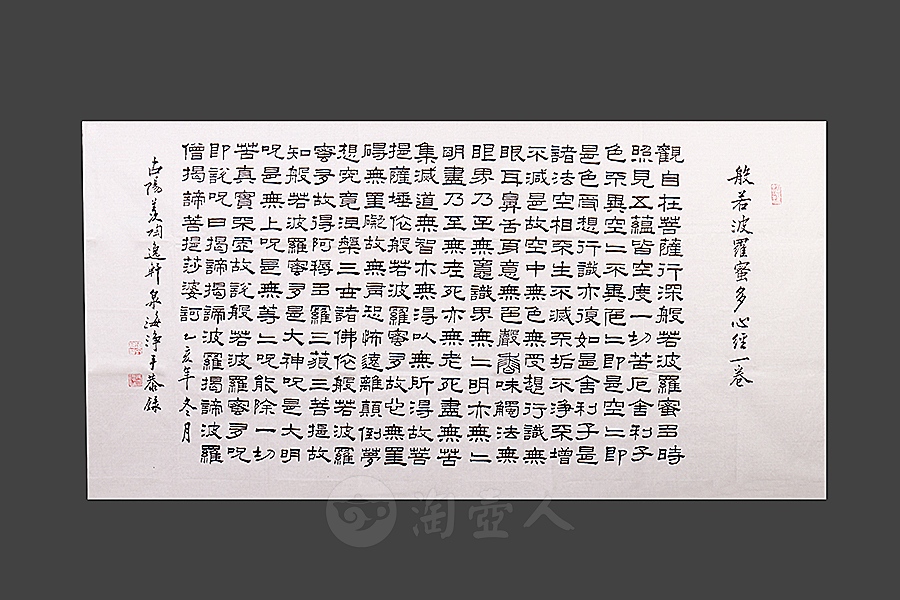 般若波羅蜜多心經一卷
觀自在菩薩行深般若波羅蜜多時
照見五蘊皆空度一切苦厄舍利子
色不異空々不異色々即是空々即
是色受想行識亦復如是舍利子是
諸法空相不生不滅不垢不淨不增
不減是故空中無色無受想行識無
眼耳鼻舌身意無色聲香味觸法無
眼界乃至無意識界無々明亦無々
明盡乃至無老死亦無老死盡無苦
集滅道無智亦無得以無所得故菩
提薩埵依般若波羅蜜多故心無罣
礙無罣礙故無有恐怖遠離顛倒夢
想究竟涅槃三世諸佛依般若波羅
蜜多故得阿耨多羅三藐三菩提故
知般若波羅蜜多是大神呪是大明
呪是無上呪是無等々呪能除一切
苦真實不虛故說般若波羅蜜多呪
即說呪曰揭諦揭諦波羅揭諦波羅
僧揭諦菩提莎婆訶 乙亥年冬月
古陽羨陶逸軒泉海淨手恭錄
淘壺人